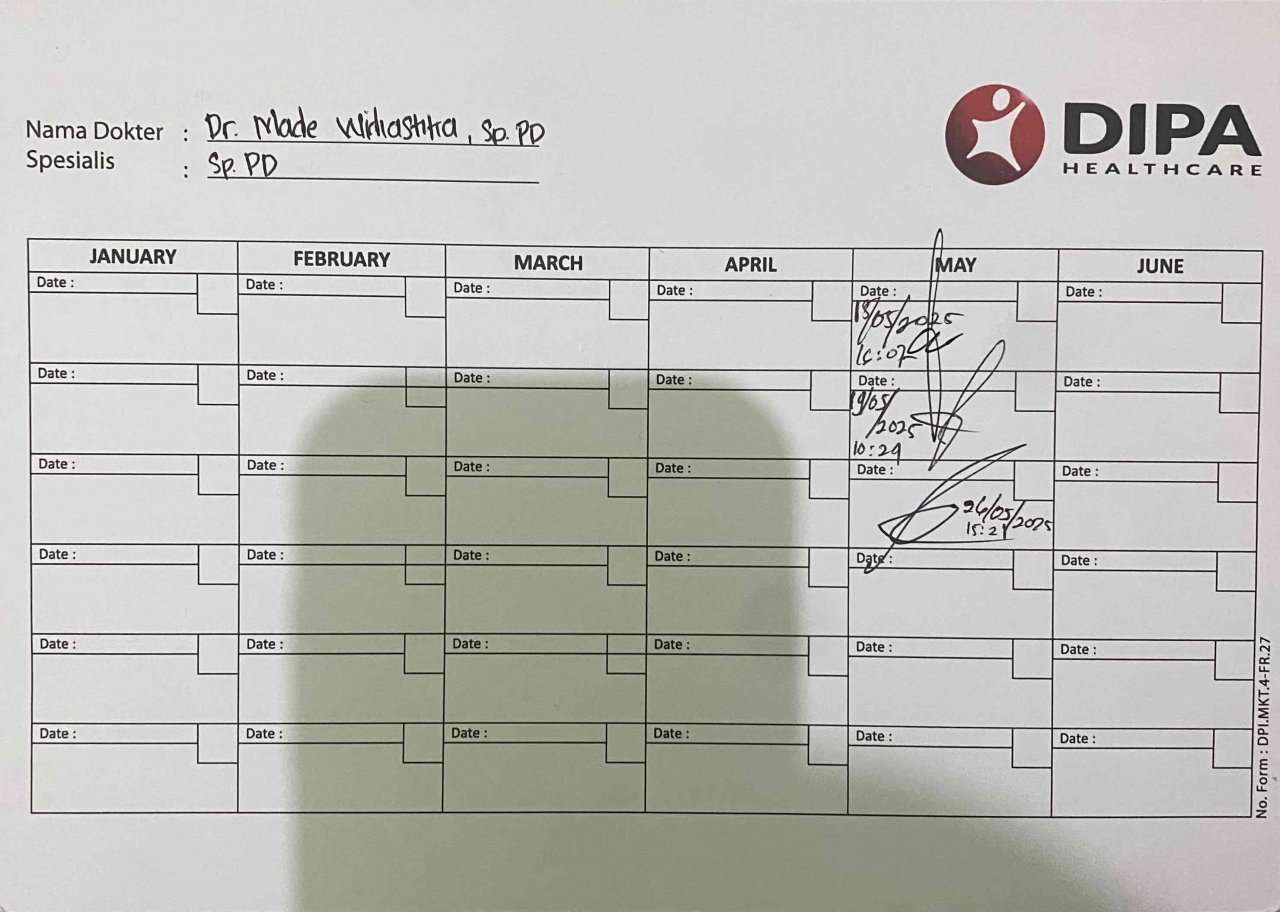 Nama Dokter : Dr. Made Wirhastika, Sp. PD
Spesialis : Sp. PD
DIPA
HEALTHCARE
JANUARY FEBRUARY MARCH APRIL MAY JUNE
Date : Date : Date : Date : Date : Date :
/05/2025
Date : Date : Date : Date : Date : Date :
19/05
/2025
10:29
Date : Date : Date : Date : Date : Date :
26/05/2025
15:21
Date : Date : Date : Date : Date : Date :
Date : Date : Date : Date : Date : Date :
Date : Date : Date : Date : Date : Date :
No. Form : DPI.MKT.4-FR.27